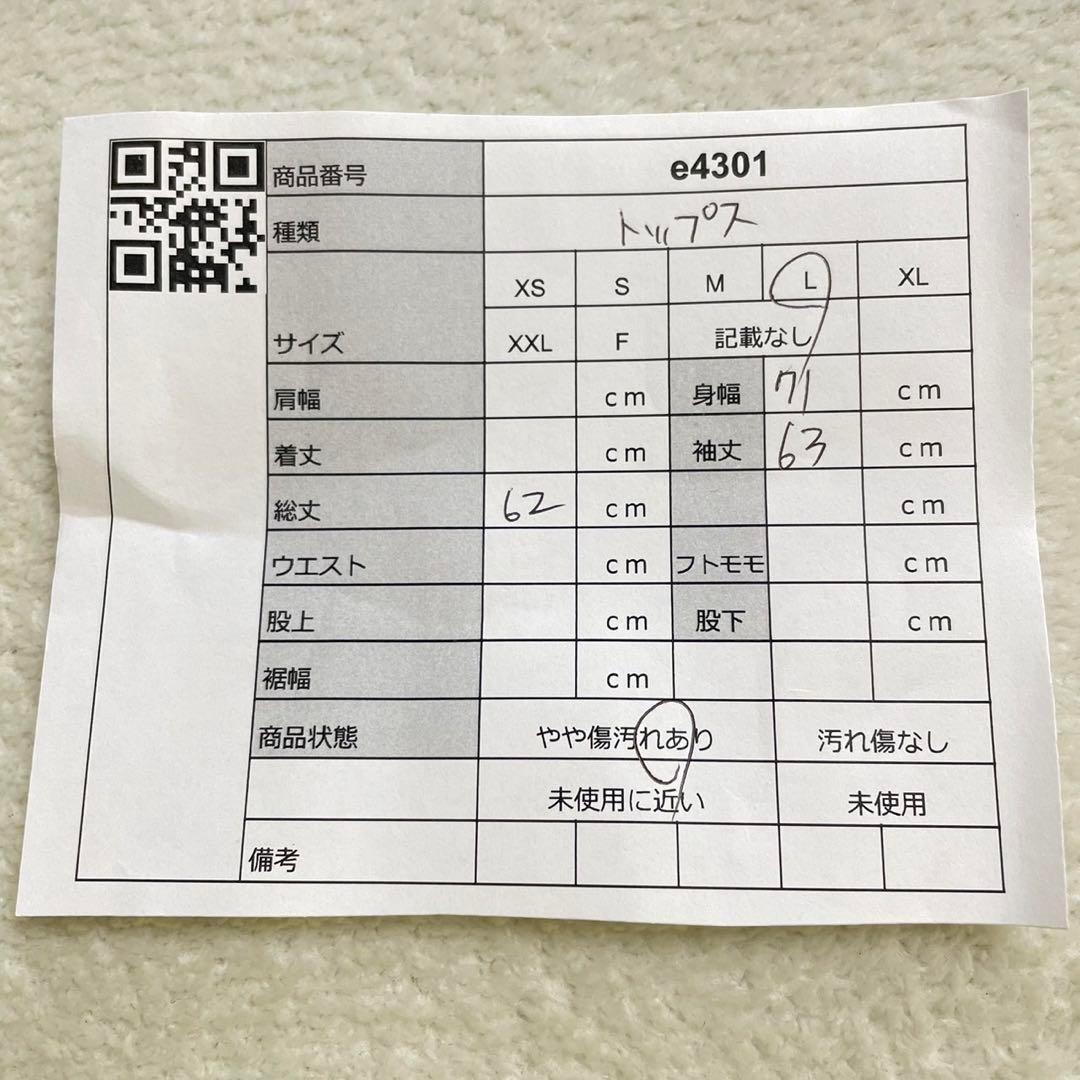 商品番号 e4301
種類 トップス
XS S M L XL
サイズ XXL F 記載なし
肩幅 cm 身幅 71 cm
着丈 cm 袖丈 63 cm
総丈 62 cm cm
ウエスト cm フトモモ cm
股上 cm 股下 cm
裾幅 cm
商品状態 やや傷汚れあり 汚れ傷なし
未使用に近い 未使用
備考